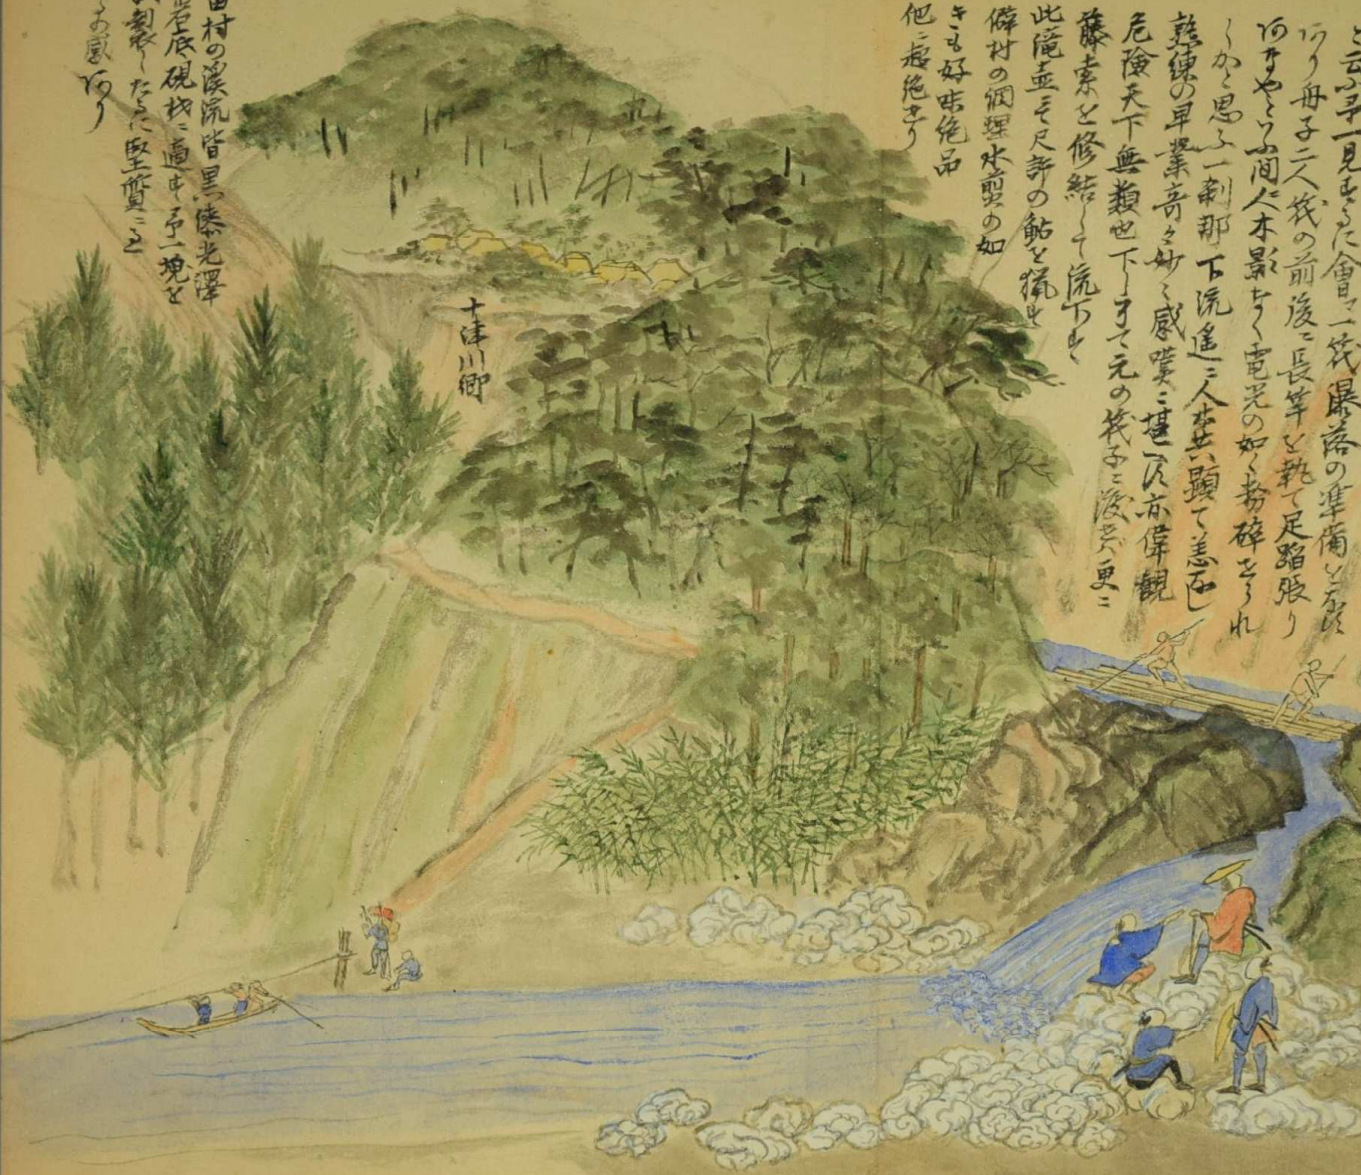 と云ふ子一見するに會々一筏瀑落の準備をなす
あり舟子二人筏の前後ニ長竿を執て足踏張り
あすやといふ間人木影なく電光の如く粉碎せられ
しかと思ふ一刹那下流遙ニ人共顕て恙なし
熟練の早業奇々妙々感嘆ニ堪へす亦偉観
危険天下無類也下りすて元の筏子ニ渡され更ニ
藤索を修結して流下す
此滝壷ニて尺許の鮎を猟す
僻村の調理水煎の如
きも好味絶品
他ニ超絶せり
十津川郷
田村の溪流皆黒漆光澤
岩底硯材ニ適す予一塊を
製したるに堅質ニ
感あり